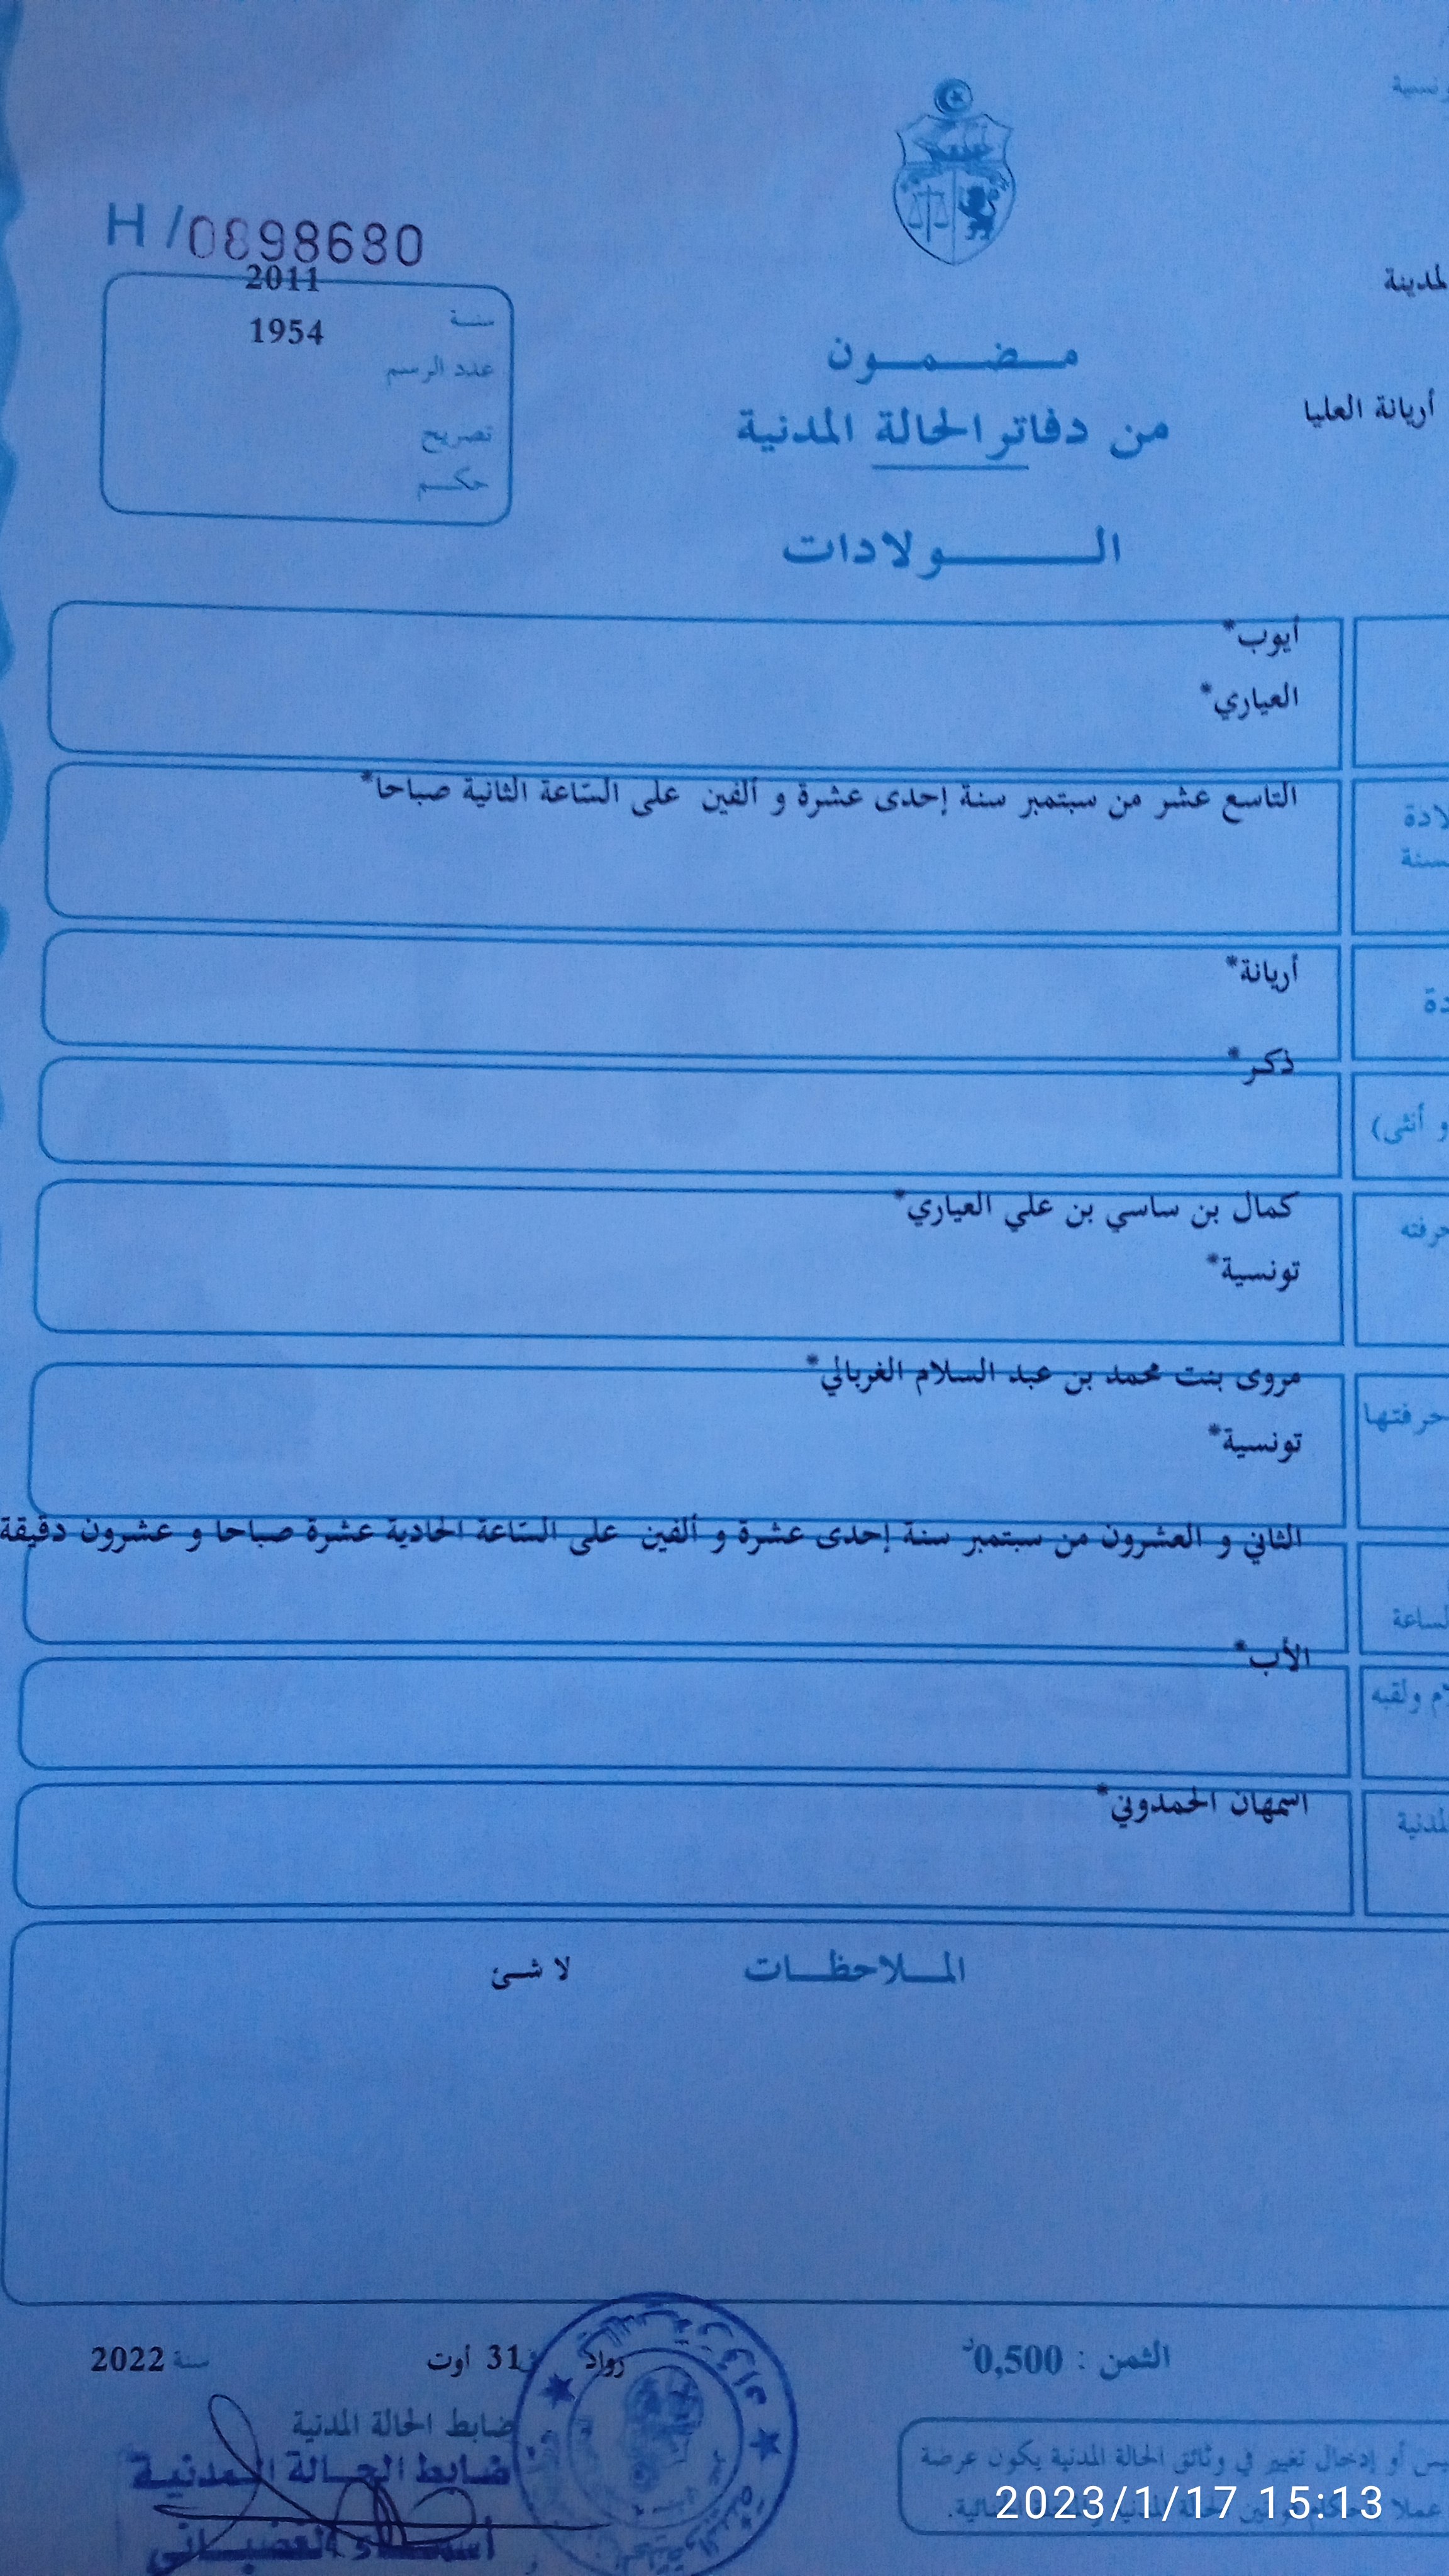 H /0898680
لمدينة
2011
سنة
1954
عدد الرسم
مضمون
أريانة العليا
من دفاتر الحالة المدنية
تصريح
حكم
الولادات
أيوب*
العياري*
التاسع عشر من سبتمبر سنة إحدى عشرة و ألفين على الساعة الثانية صباحا*
أريانة*
ذكر*
و أنثى)
كمال بن ساسي بن علي العياري*
تونسية*
مروى بنت محمد بن عبد السلام الغربالي*
حرفتها
تونسية*
الثاني و العشرون من سبتمبر سنة إحدى عشرة و ألفين على الساعة الحادية عشرة صباحا و عشرون دقيقة
الأب*
ولقبه
اسمهان الحمدوني*
الملاحظات لا شئ
الثمن : 0,500د
رواد 31 أوت سنة 2022
ضابط الحالة المدنية
ضابط الحالة المدنية
أو إدخال تغيير في وثائق الحالة المدنية يكون عرضة
2023/1/17 15:13